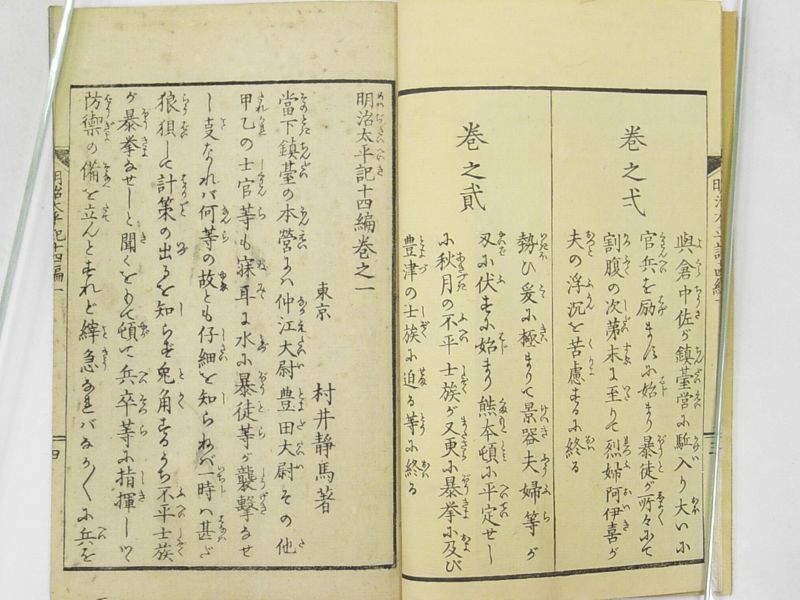 卷之弌
與倉中佐が鎮䑓営に駈入り大いに
官兵を励ますに始まり暴徒が所々にて
割腹の次第末に至りて烈婦阿伊喜が
夫の浮沉を苦慮するに終る
卷之貳
勢ひ爰に極まりて景器夫婦等が
刄に伏すに始まり熊本頓に平定せし
に秋月の不平士族が又更に暴挙に及び
豊津の士族に迫る等に終る
明治太平記十四編卷之一
東京 村井静馬著
當下鎮䑓の本營には仲江大尉豊田大尉その他
甲乙の士官等も寐耳に水に暴徒等が襲撃なせ
し叓なれば何等の故とも仔細を知らねば一時は甚だ
狼狽して計策の出るを知らず兎角するうち不平士族
が暴挙なせしと聞くをもて頓て兵卒等に指揮しつゝ
防禦の備を立んとすれど緯急なればなか〳〵に兵を
明治太平記十四編一
四